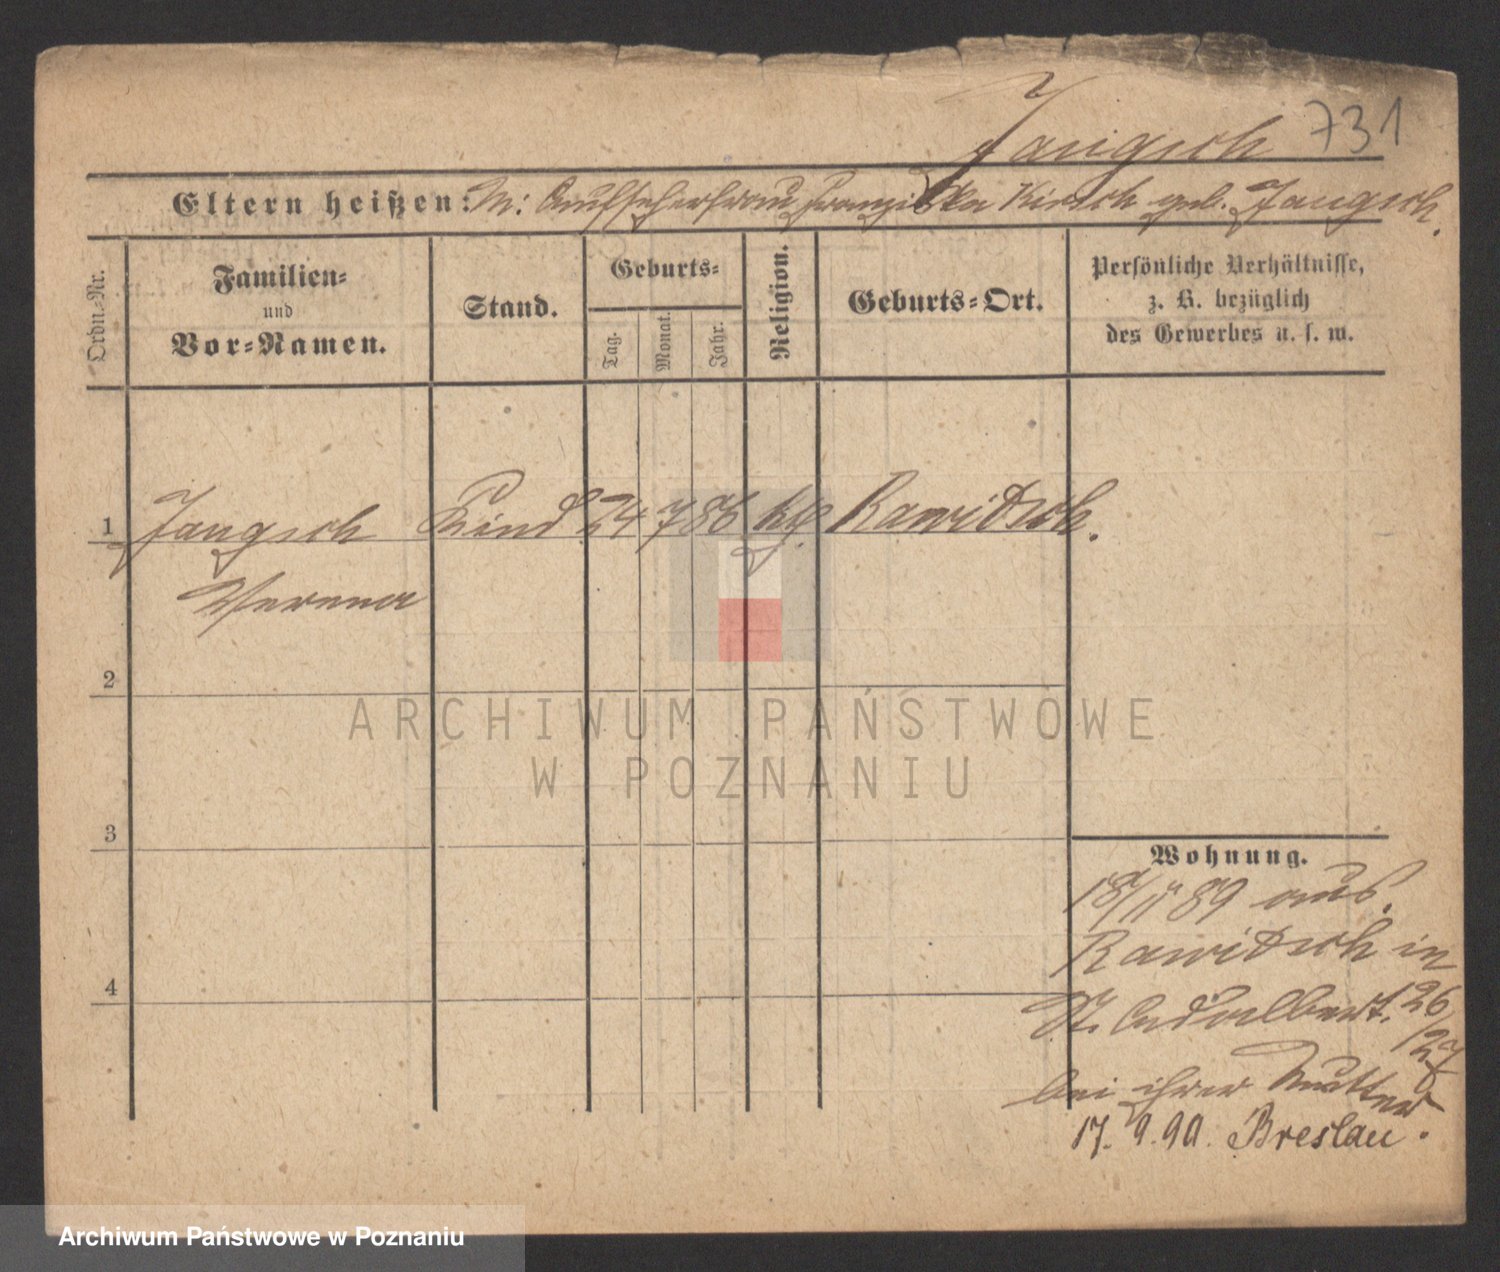 Jangsch 731
Eltern heißen: M: Aufseherfrau Franziska Kirsch geb. Jangsch.
Ordn.-Nr.
Familien-
und
Vor-Namen.
Stand.
Geburts-
Tag.
Monat.
Jahr.
Religion.
Geburts-Ort.
Persönliche Verhältnisse,
z. B. bezüglich
des Gewerbes u. s. w.
1 Jangsch Kind 24 7 86 kth Rawitsch.
Verena
2
ARCHIWUM PAŃSTWOWE
W POZNANIU
3
4
Wohnung.
18/11 89 aus
Rawitsch in
St. Adalbert. 26
/27
bei ihrer Mutter
17. 9. 90. Breslau.
Archiwum Państwowe w Poznaniu